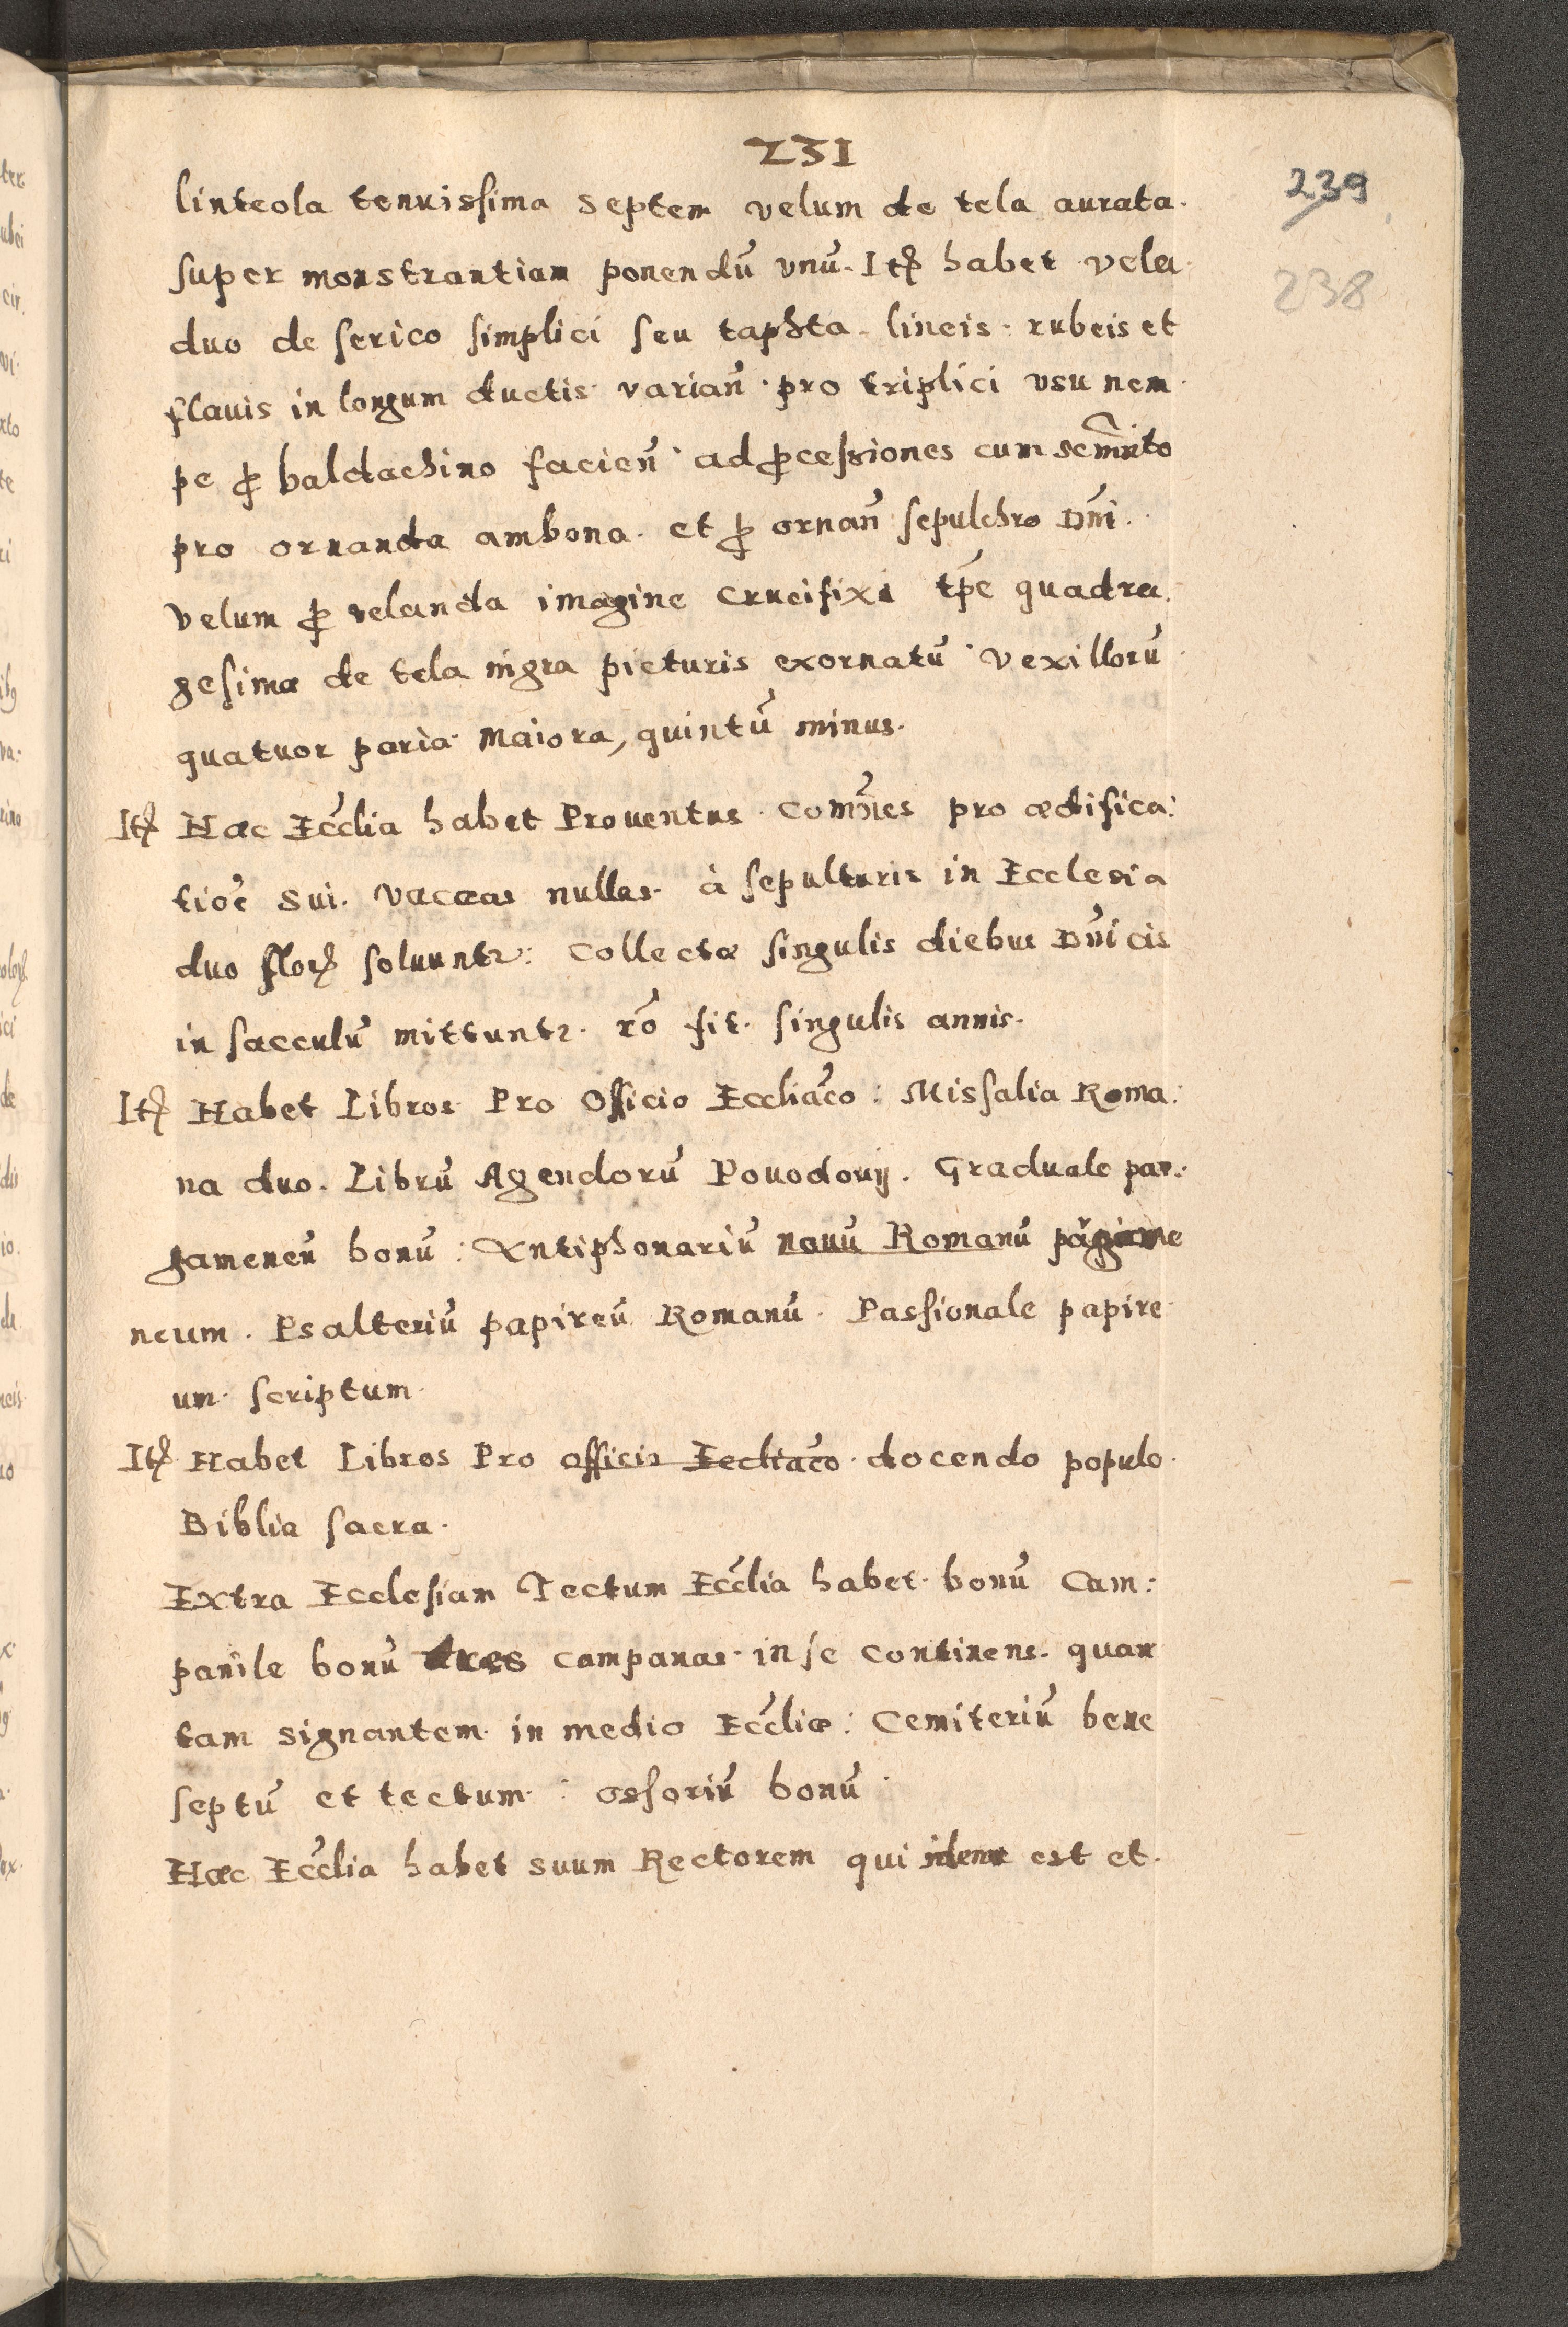 231
239
238
linteola tenuissima septem velum de tela aurata.
super monstrantiam ponendū vnū. Itē habet vela
duo de serico simplici seu taphta. lineis. rubeis et
flauis in longum ductis varian̄. pro triplici vsu nem
pe ꝓ baldachino facien̄ ad ꝓcessiones cum
pro ornanda ambona. et ꝓ ornan̄ sepulchro Dn̄i.
velum ꝓ velanda imagine crucifixi tp̄e quadra.
gesimæ de tela nigra picturis exornatū vexillorū
quatuor paria Maiora, quintū minus.
Itē Hæc Eccłia habet Prouentus. com̄nes pro ædifica:
tiōe sui. vaccas nullas. à sepulturis in Ecclesia
duo floꝝ soluuntr: Collectæ singulis diebus Dn̄icis
in sacculū mittuntr. rō fit. singulis annis.
Itē Habet Libros Pro Officio Eccliac̄o: Missalia Roma:
na duo. Librū Agendorū Pouodouij. Graduale par.
gameneū bonū: Antiphonariū nouū Romanū pagame
neum. Psalteriū papireū Romanū. Passionale papire
um scriptum.
Itē Habet Libros Pro officio Eccliac̄o. docendo populo.
Biblia sacra.
Extra Ecclesiam Tectum Eccłia habet bonū Cam:
panile bonū tres campanas in se continens. quar
tam signantem in medio Eccłiæ: Cemiteriū bene
septū et tectum: ossoriū bonū
Hæc Eccłia habet suum Rectorem qui idem est et.